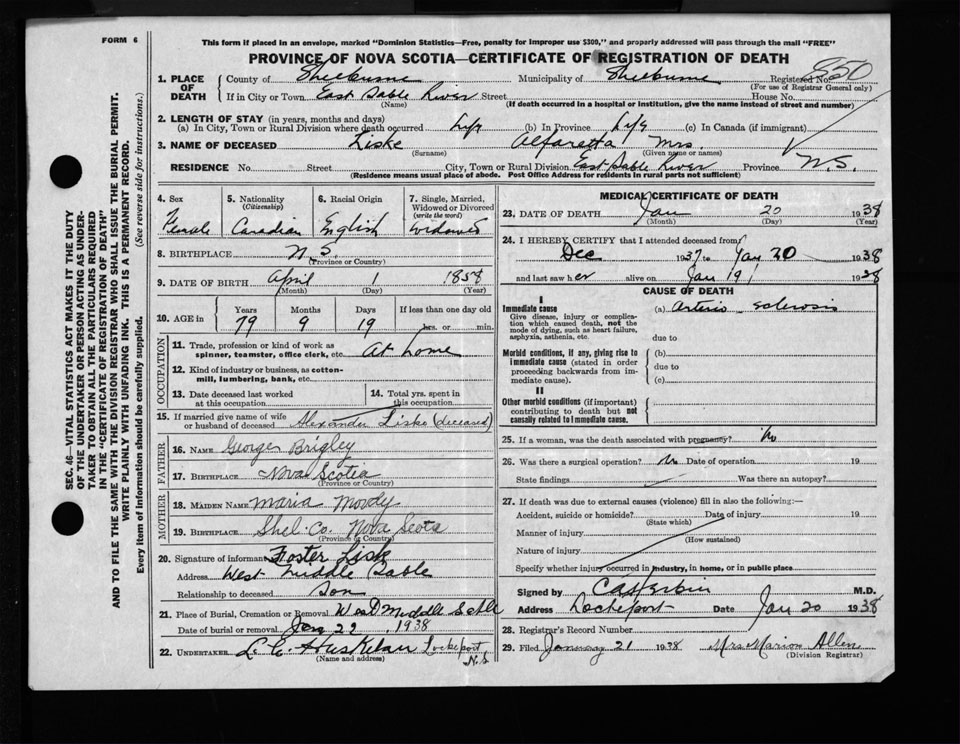 FORM 6
This form if placed in an envelope, marked "Dominion Statistics—Free, penalty for improper use $300," and properly addressed will pass through the mail "FREE"
PROVINCE OF NOVA SCOTIA—CERTIFICATE OF REGISTRATION OF DEATH
1. PLACE OF DEATH
County of Shelburne Municipality of Shelburne Registered No. 850
(For use of Registrar General only)
If in City or Town East Sable River Street House No.
(Name) (If death occurred in a hospital or institution, give the name instead of street and number)
2. LENGTH OF STAY (in years, months and days)
(a) In City, Town or Rural Division where death occurred Life (b) In Province Life (c) In Canada (if immigrant)
3. NAME OF DECEASED Liske Alfaretta Mrs.
(Surname) (Given name or names)
RESIDENCE No. Street City, Town or Rural Division East Sable River Province N.S.
(Residence means usual place of abode. Post Office Address for residents in rural parts not sufficient)
4. Sex Female
5. Nationality (Citizenship) Canadian
6. Racial Origin English
7. Single, Married, Widowed or Divorced (write the word) Widowed
8. BIRTHPLACE N.S.
(Province or Country)
9. DATE OF BIRTH April 1 1858
(Month) (Day) (Year)
10. AGE in Years 79 Months 9 Days 19 If less than one day old hrs. or min.
OCCUPATION
11. Trade, profession or kind of work as spinner, teamster, office clerk, etc. At home
12. Kind of industry or business, as cotton-mill, lumbering, bank, etc.
13. Date deceased last worked at this occupation
14. Total yrs. spent in this occupation
15. If married give name of wife or husband of deceased Alexander Liske (deceased)
FATHER
16. NAME George Brigley
17. BIRTHPLACE Nova Scotia
(Province or Country)
MOTHER
18. MAIDEN NAME Maria Moody
19. BIRTHPLACE Shel. Co. Nova Scota
(Province or Country)
20. Signature of informant Foster Lisk
Address West Middle Sable
Relationship to deceased Son
21. Place of Burial, Cremation or Removal West Middle Sable
Date of burial or removal Jan 22, 1938
22. UNDERTAKER Lockeport, N.S.
(Name and address)
MEDICAL CERTIFICATE OF DEATH
23. DATE OF DEATH Jan 20 1938
(Month) (Day) (Year)
24. I HEREBY CERTIFY that I attended deceased from
Dec 1937 to Jan 20 1938
and last saw her alive on Jan 19 1938
CAUSE OF DEATH
I
Immediate cause
Give disease, injury or complication which caused death, not the mode of dying, such as heart failure, asphyxia, asthenia, etc.
(a) Arterio sclerosis
due to
Morbid conditions, if any, giving rise to immediate cause (stated in order proceeding backwards from immediate cause).
(b)
due to
(c)
II
Other morbid conditions (if important) contributing to death but not causally related to immediate cause.
25. If a woman, was the death associated with pregnancy? No
26. Was there a surgical operation? No Date of operation 19
State findings Was there an autopsy?
27. If death was due to external causes (violence) fill in also the following:—
Accident, suicide or homicide? Date of injury 19
(State which)
Manner of injury
(How sustained)
Nature of injury
Specify whether injury occurred in industry, in home, or in public place
Signed by M.D.
Address Lockeport Date Jan 20 1938
28. Registrar's Record Number
29. Filed January 21 1938 Mrs Marion Allen
(Division Registrar)
SEC. 46—VITAL STATISTICS ACT MAKES IT THE DUTY
OF THE UNDERTAKER OR PERSON ACTING AS UNDER-
TAKER TO OBTAIN ALL THE PARTICULARS REQUIRED
IN THE "CERTIFICATE OF REGISTRATION OF DEATH"
AND TO FILE THE SAME WITH THE DIVISION REGISTRAR WHO SHALL ISSUE THE BURIAL PERMIT.
WRITE PLAINLY WITH UNFADING INK. THIS IS A PERMANENT RECORD.
Every item of information should be carefully supplied. (See reverse side for instructions.)